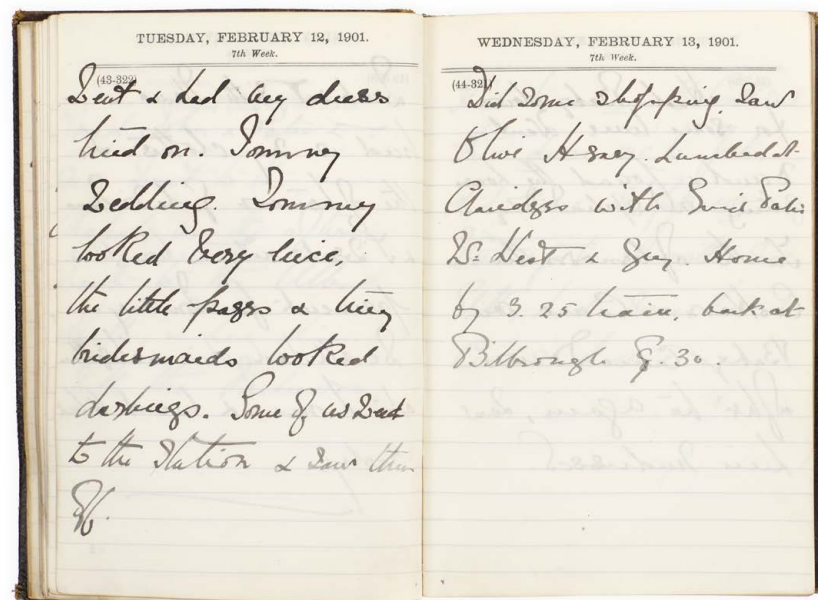 TUESDAY, FEBRUARY 12, 1901.
7th Week.
(43-322)
Went & had my dress
tried on. Tommy
Wedding. Tommy
looked very nice,
the little pages & tiny
bridesmaids looked
darlings. Some of us went
to the Station & saw them
off.
WEDNESDAY, FEBRUARY 13, 1901.
7th Week.
(44-321)
Did some shopping, saw
Olive Henry. Lunched at
Claridges with
West & Guy. Home
by 3.25 train, back at
Bilbrough 8.30.